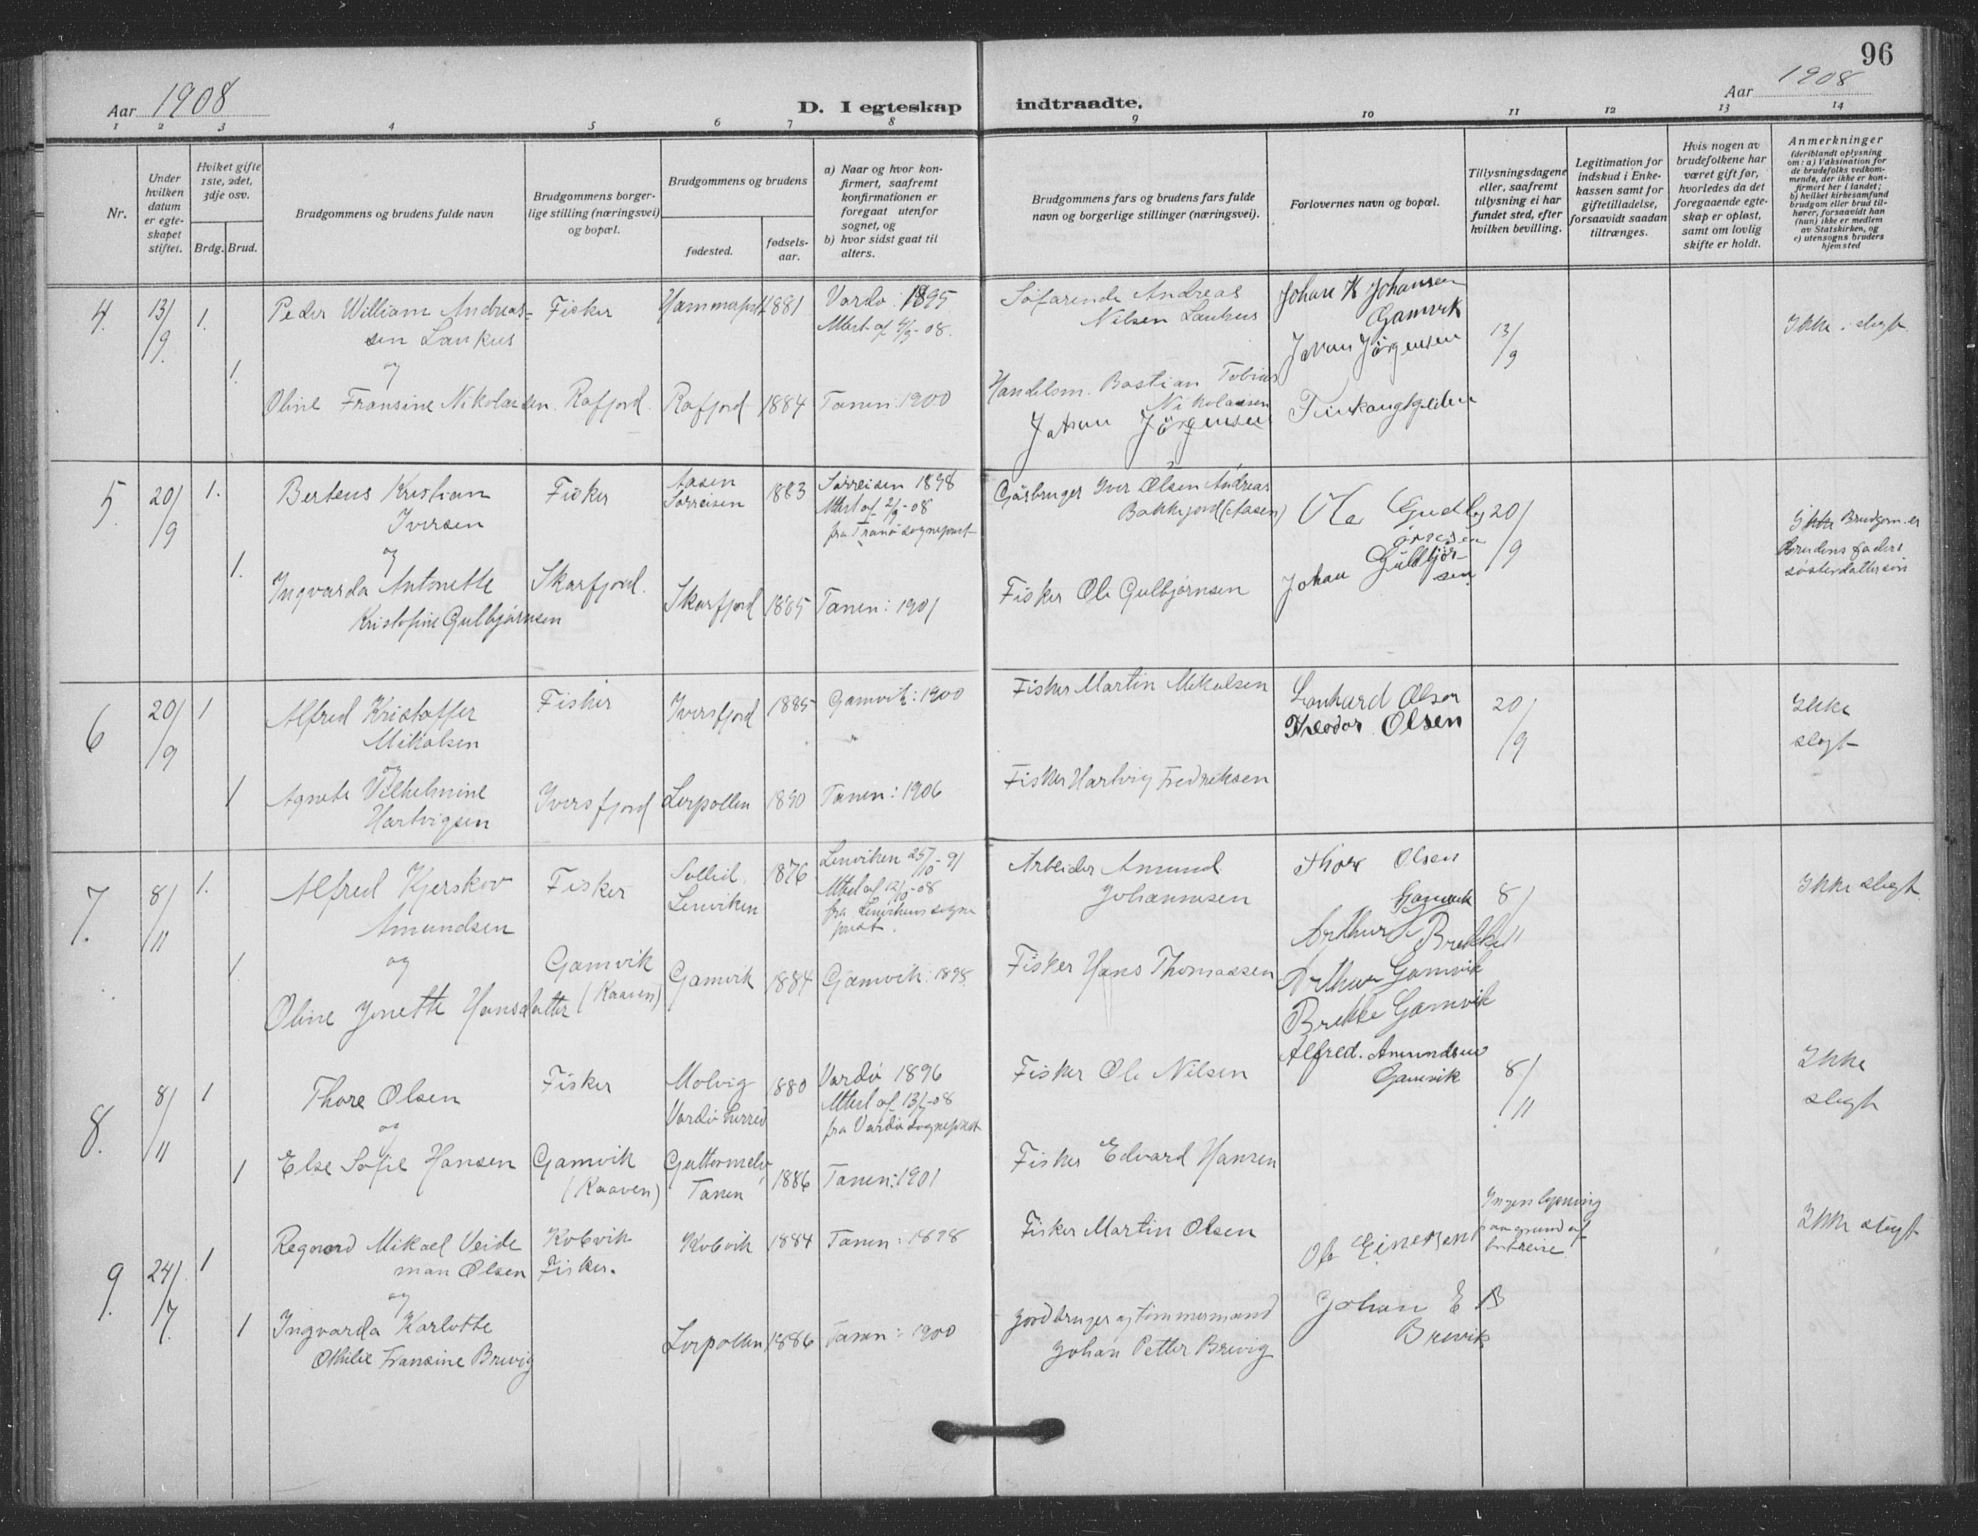 96
Aar 1908
D. I egteskap indtraadte.
Aar 1908
1 2 3 4 5 6 7 8 9 10 11 12 13 14
Nr.
Under hvilken datum er egteskapet stiftet.
Hviket gifte 1ste, 2det, 3dje osv.
Brdg. Brud.
Brudgommens og brudens fulde navn
Brudgommens borgerlige stilling (næringsvei) og bopæl.
Brudgommens og brudens
fødested.
fødselsaar.
a) Naar og hvor konfirmert, saafremt konfirmationen er foregaat utenfor sognet, og
b) hvor sidst gaat til alters.
Brudgommens fars og brudens fars fulde navn og borgerlige stillinger (næringsvei).
Forlovernes navn og bopæl.
Tillysningsdagene eller, saafremt tillysning ei har fundet sted, efter hvilken bevilling.
Legitimation for indskud i Enkekassen samt for giftetilladelse, forsaavidt saadan tiltrænges.
Hvis nogen av brudefolkene har været gift før, hvorledes da det foregaaende egteskap er opløst, samt om lovlig skifte er holdt.
Anmerkninger
(deriblandt oplysning om: a) Vaksination for de brudefolks vedkommende, der ikke er konfirmert her i landet; b) hvilket kirkesamfund brudgom eller brud tilhører, forsaavidt han (hun) ikke er medlem av Statskirken, og c) utensogns bruders hjemsted
4. 13/9 1.
Peder William Andreassen Lankus
Fisker
1881
Vardø: 1895
Attest af 4/9-08.
Søfarende Andreas Nilsen Lankus
Johan K Johansen Gamvik
Johan Jørgensen
13/9
Ikke i slegt
og
1.
Oline Fransine Nikolaisen
Rafjord.
Rafjord
1884
Tanen: 1900
Handelsm. Bastian Tobias Nikolaisen
Johan Jørgensen
5. 20/9 1.
Berteus Kristian Iversen
Fisker
Aasen Sørreisen
1883
Sørreisen 1898
Attest af 2/9-08
fra Tranø sogneprest
Gaarbruger Iver Olsen Andreas
Bakkejord (Aasen)
Ole Gudbjørnsen
Johan Gulbjørnsen
20/9
Brudgom er
Brudens faders
søsterdattersøn
og
1.
Ingvarda Antonette
Kristofine Gulbjørnsen
Skarfjord.
Skarfjord
1885
Tanen: 1901
Fisker Ole Gulbjørnsen
6 20/9 1
Alfred Kristoffer Mikalsen
Fisker
Iversfjord
1885
Gamvik: 1900
Fisker Martin Mikalsen
Lenhard Olsen
Theodor Olsen
20/9
Ikke slegt
og
1
Agnete Vilhelmine Hartvigsen
Iversfjord
Lerpollen
1890
Tanen: 1906
Fisker Hartvig Fredriksen
7. 8/11 1.
Alfred Kjerskov Amundsen
Fisker
Sollid. Lenviken
1876
Lenviken 25/10-91
Attest af 12/10-08
fra Lenvikens sogneprest.
Arbeider Amund Johannesen
Thor Olsen Gamvik
Arthur Brekke
8/11
Ikke slegt
og
1.
Oline Jonette Hansdatter
Gamvik (Kaaven)
Gamvik
1884
Gamvik: 1898
Fisker Hans Thomassen
Arthur Gamvik
Brekke Gamvik
8. 8/11 1
Thore Olsen
Fisker
Molvig Vardø herred
1880
Vardø 1896
Attest af 13/7-08
fra Vardø sogneprest
Fisker Ole Nilsen
Alfred. Amundsen Gamvik
8/11
Ikke slegt
og
1
Else Sofie Hansen
Gamvik (Kaaven)
Guttormelv Tanen
1886
Tanen: 1901
Fisker Edvard Hansen
9. 24/7. 1
Regnord Mikael Veideman Olsen
Kobvik Fisker.
Kobvik
1884
Tanen: 1898
Fisker Martin Olsen
Ole Einersen
Ingen lysning
paa grund af
bortreise
Ikke slegt
og
1
Ingvarda Karlotte
Othilie Fransine Brevig
Lerpollen
1886
Tanen: 1900
Jordbruger og tømmermand
Johan Petter Brevig
Johan E B Brevik